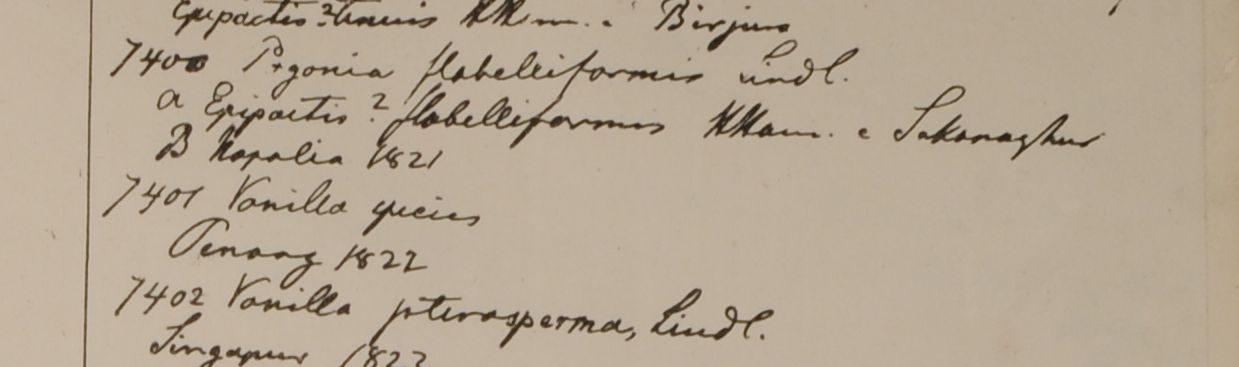 Epipactis? tenuis HHam. e Birjura
7400 Pogonia flabelleiformis Lindl.
a Epipactis? flabelliformis HHam. e Sukanaghur
B Napalia 1821
7401 Vanilla species
Penang 1822
7402 Vanilla pterosperma, Lindl.
Singapur 1822